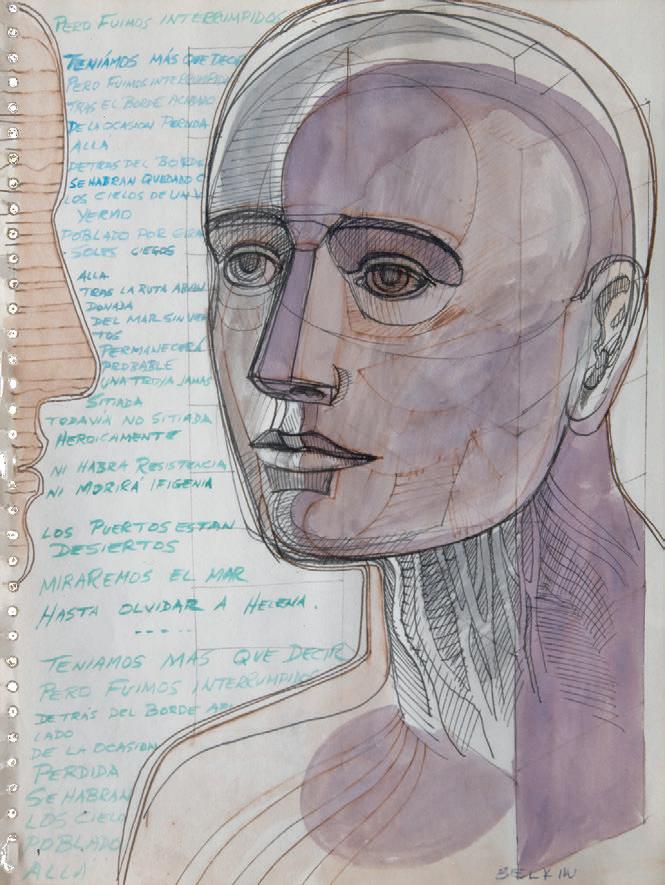 PERO FUIMOS INTERRUMPIDOS
TENIÁMOS MÁS QUE DECIR
PERO FUIMOS INTERRUMPID
TRAS EL BORDE ACABADO
DE LA OCASION PERDIDA
ALLA
DETRAS DEL BORDE
SE HABRAN QUEDADO
LOS CIELOS DE UN
YERMO
POBLADO POR
SOLES CIEGOS
ALLA
TRAS LA RUTA ABAN
DONADA
DEL MAR SIN VEN
TOS
PERMANECERÁ
PROBABLE
UNA TROYA JAMAS
SITIADA
TODAVÍA NO SITIADA
HEROICAMENTE
NI HABRA RESISTENCIA
NI MORIRÁ IFIGENIA
LOS PUERTOS ESTAN
DESIERTOS
MIRAREMOS EL MAR
HASTA OLVIDAR A HELENA.
-----
TENIAMOS MAS QUE DECIR
PERO FUIMOS INTERRUMPIDOS
DETRÁS DEL BORDE
LADO
DE LA OCASION
PERDIDA
SE HABRAN
LOS CIELO
POBLADO
ALLÁ
BELKIN